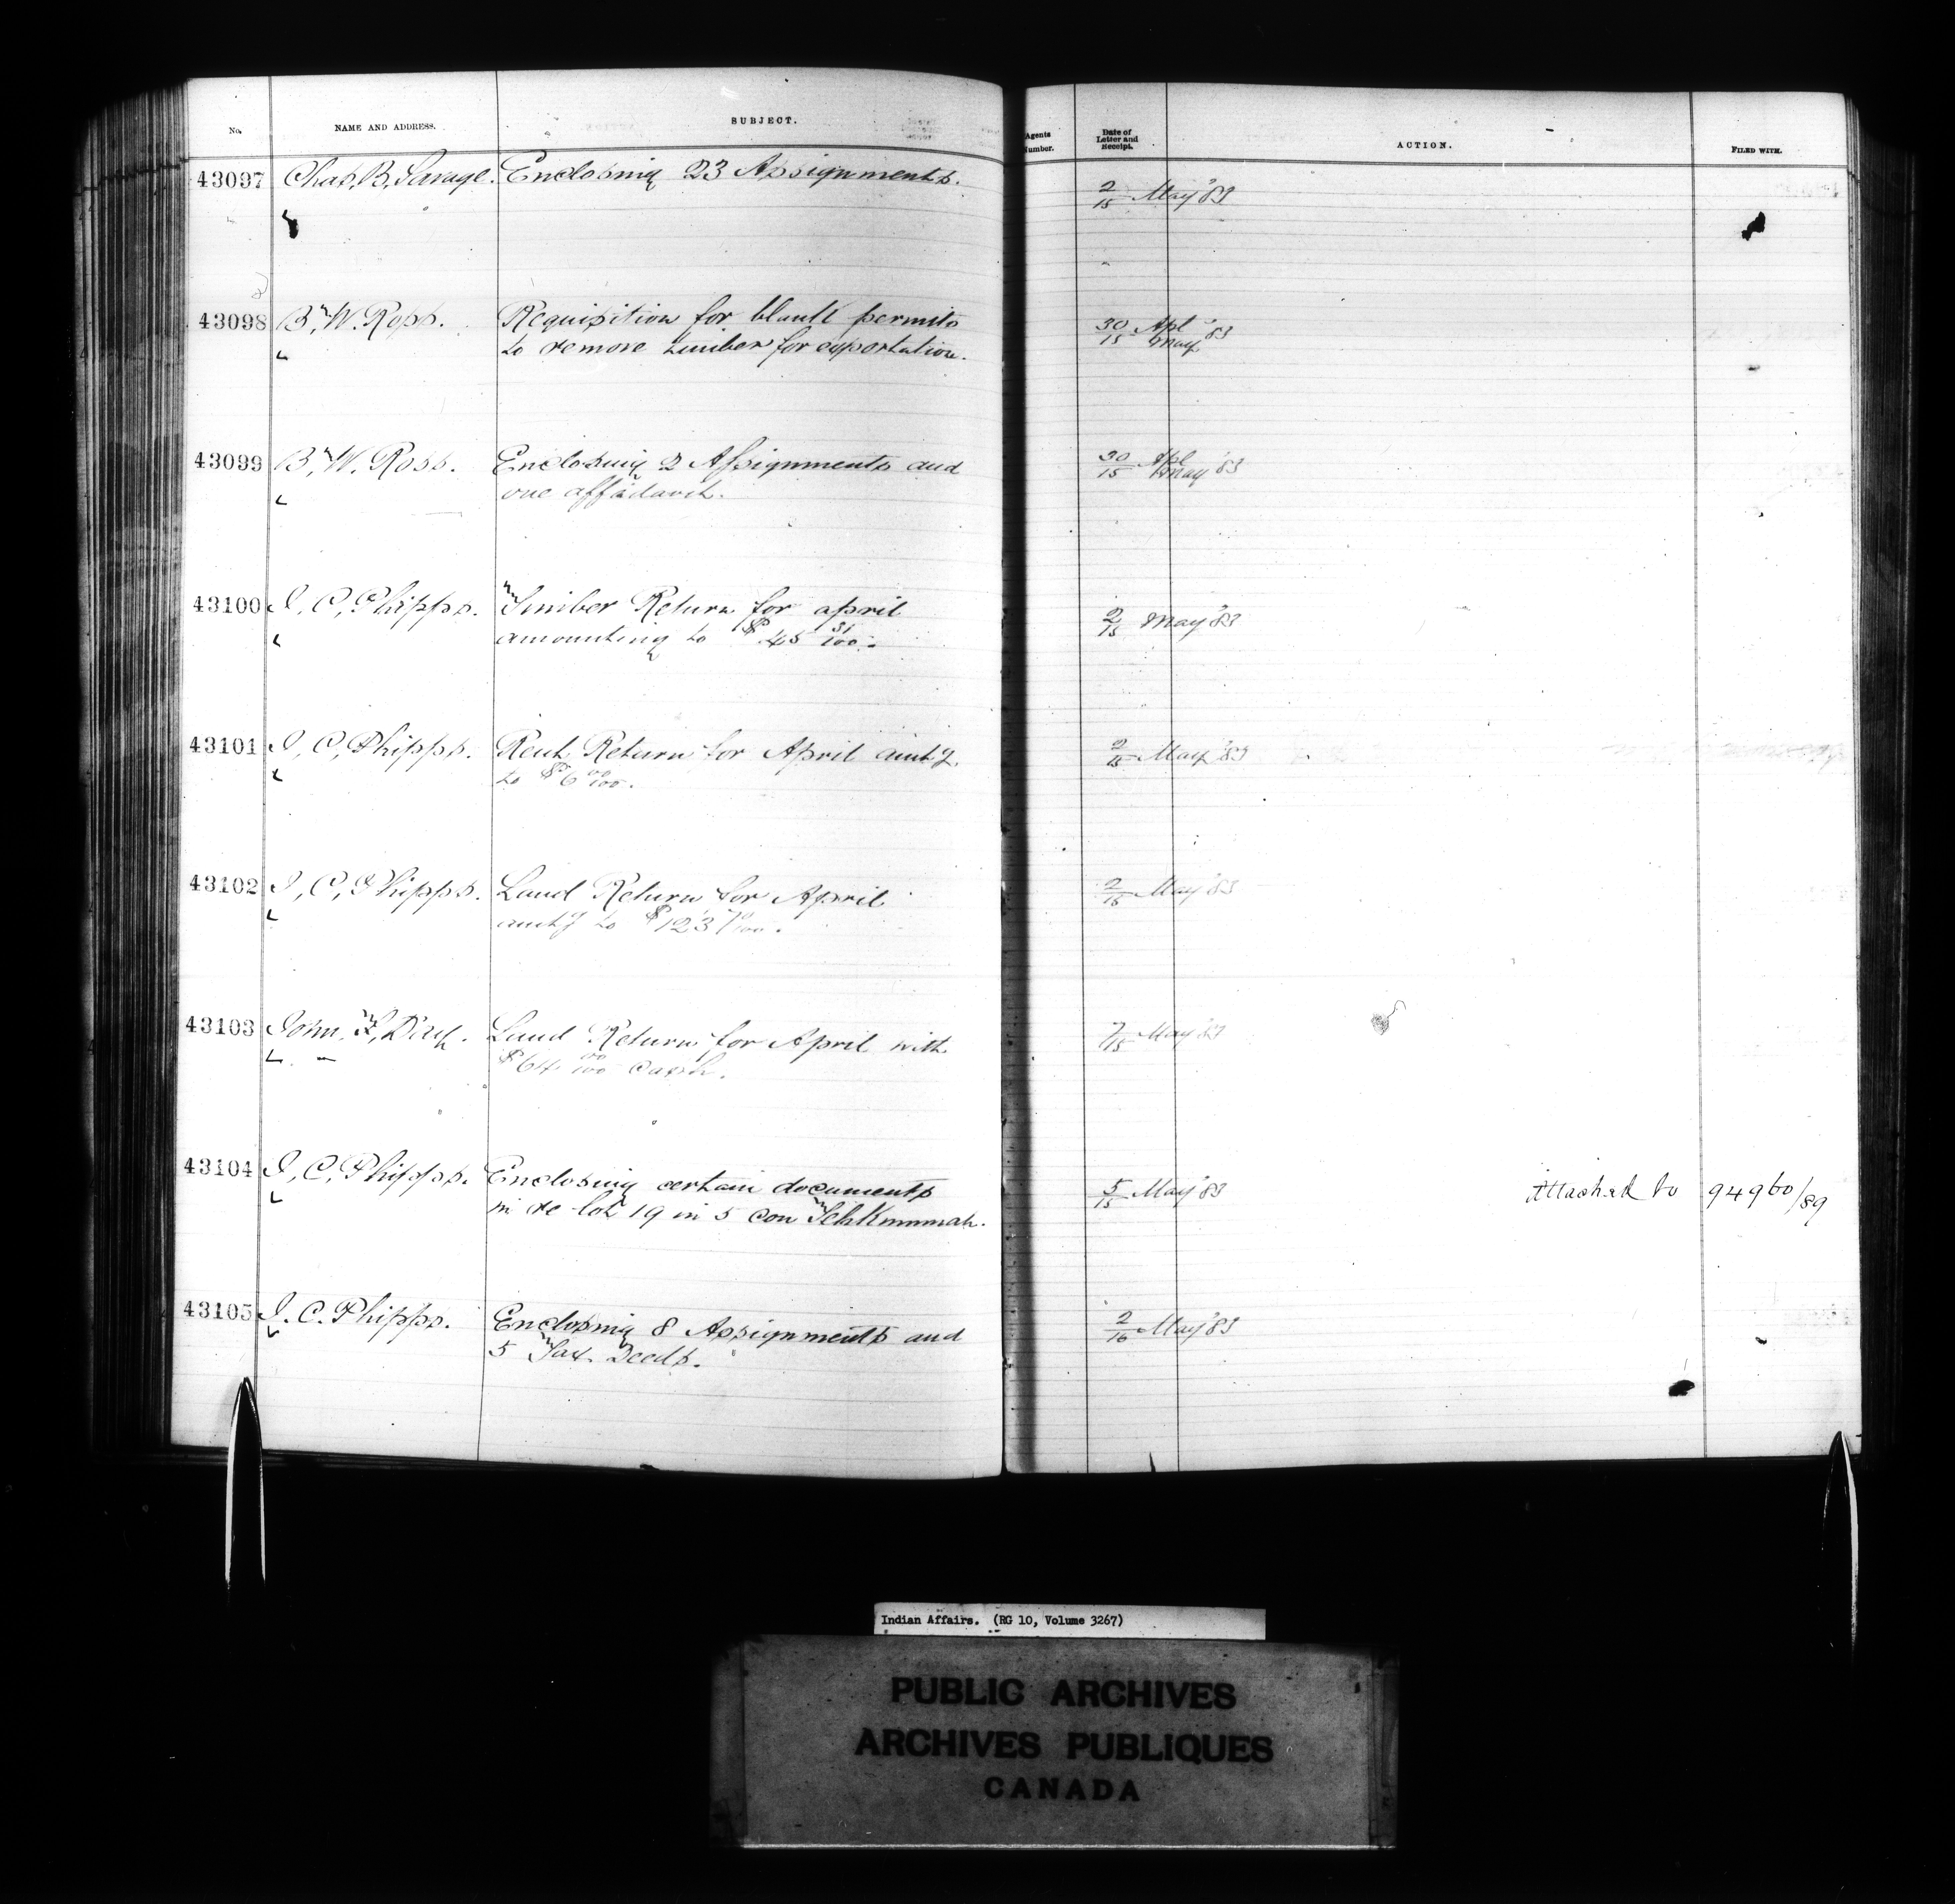 No. NAME AND ADDRESS. SUBJECT. Agents Number. Date of Letter and Receipt. ACTION. FILED WITH.
43097 Chas. B. Savage. Enclosing 23 Assignments. 2/15 May '83
43098 B. W. Ross. Requisition for blank permits 30/15 Apl May '83
to remove timber for exportation.
43099 B. W. Ross. Enclosing 2 Assignments and 30/15 Apl May '83
one affadavit.
43100 J. C. Phipps. Timber Return for april 2/15 May '83
amounting to $45 31/100.
43101 J. C. Phipps. Rent Return for April amt'g 2/15 May '83
to $6 00/100.
43102 J. C. Phipps. Land Return for April 2/15 May '83
amt'g to $123 70/100.
43103 John Day. Land Return for April with 7/15 May '83
$64 00/100 cash.
43104 J. C. Phipps. Enclosing certain documents 5/15 May '83 Attached to 94960/89
in re lot 19 in 5 con Tehkummah.
43105 J. C. Phipps. Enclosing 8 Assignments and 2/16 May '83
5 Tax Deeds.
Indian Affairs. (RG 10, Volume 3267)
PUBLIC ARCHIVES
ARCHIVES PUBLIQUES
CANADA